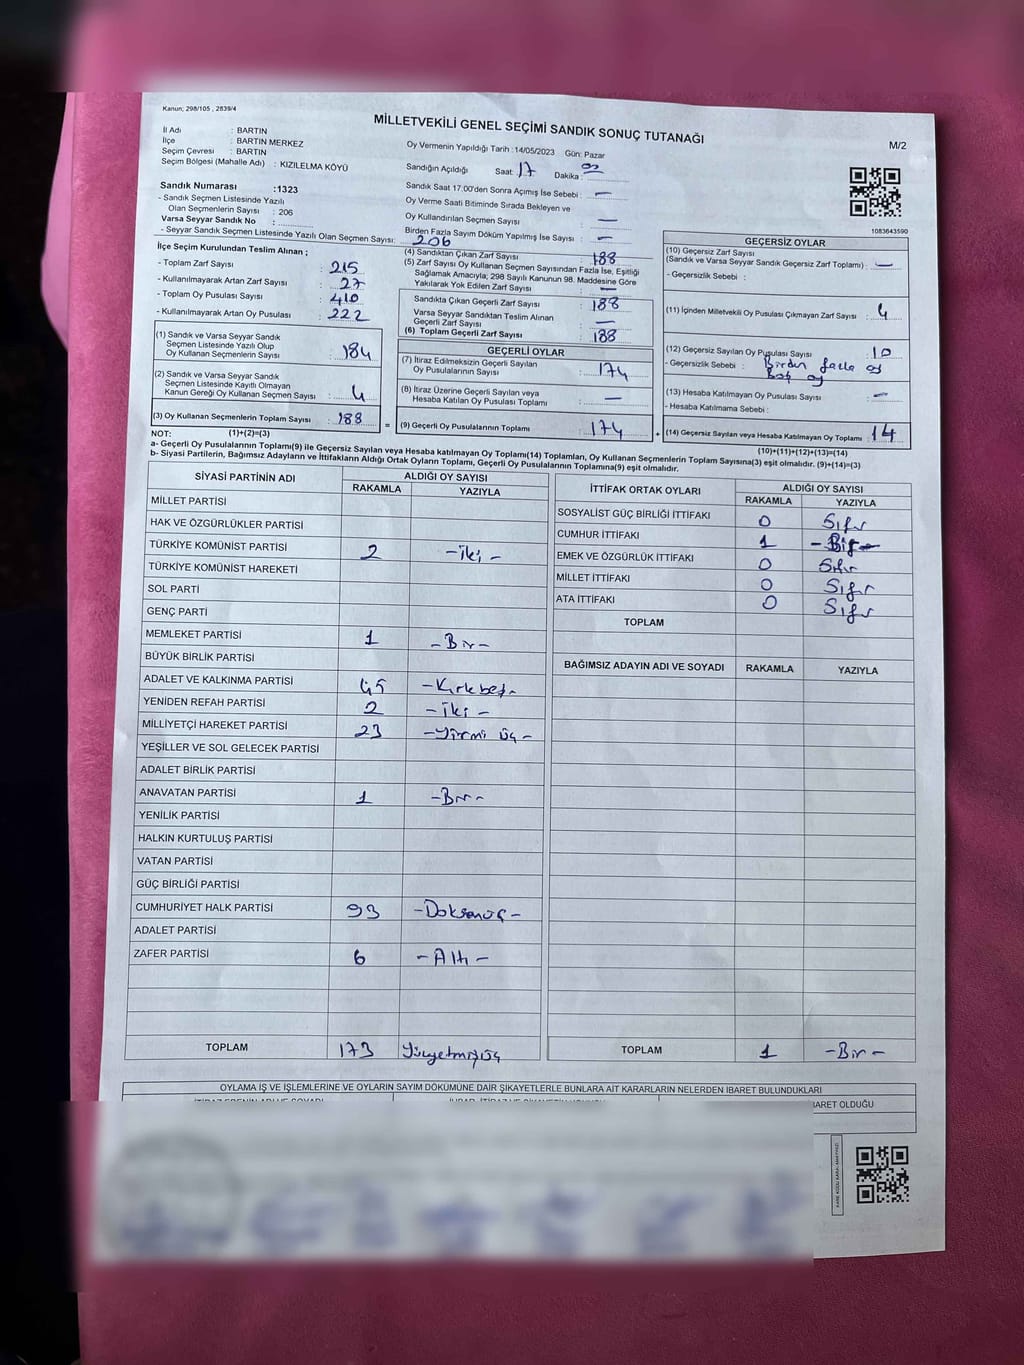 Kanun; 298/105 , 2839/4
MİLLETVEKİLİ GENEL SEÇİMİ SANDIK SONUÇ TUTANAĞI
M/2
İl Adı : BARTIN
İlçe : BARTIN MERKEZ
Seçim Çevresi : BARTIN
Seçim Bölgesi (Mahalle Adı) : KIZILELMA KÖYÜ
Oy Vermenin Yapıldığı Tarih :14/05/2023 Gün: Pazar
Sandığın Açıldığı Saat: 17 Dakika :
Sandık Numarası :1323
- Sandık Seçmen Listesinde Yazılı
Olan Seçmenlerin Sayısı : 206
Varsa Seyyar Sandık No :
- Seyyar Sandık Seçmen Listesinde Yazılı Olan Seçmen Sayısı: 206
Sandık Saat 17.00'den Sonra Açımış İse Sebebi : —
Oy Verme Saati Bitiminde Sırada Bekleyen ve
Oy Kullandırılan Seçmen Sayısı : —
Birden Fazla Sayım Döküm Yapılmış İse Sayısı : —
1083643590
İlçe Seçim Kurulundan Teslim Alınan ;
- Toplam Zarf Sayısı : 215
- Kullanılmayarak Artan Zarf Sayısı : 27
- Toplam Oy Pusulası Sayısı : 410
- Kullanılmayarak Artan Oy Pusulası : 222
(1) Sandık ve Varsa Seyyar Sandık
Seçmen Listesinde Yazılı Olup
Oy Kullanan Seçmenlerin Sayısı : 184
(2) Sandık ve Varsa Seyyar Sandık
Seçmen Listesinde Kayıtlı Olmayan
Kanun Gereği Oy Kullanan Seçmen Sayısı : 4
(3) Oy Kullanan Seçmenlerin Toplam Sayısı : 188
(4) Sandıktan Çıkan Zarf Sayısı : 188
(5) Zarf Sayısı Oy Kullanan Seçmen Sayısından Fazla İse, Eşitliği
Sağlamak Amacıyla; 298 Sayılı Kanunun 98. Maddesine Göre
Yakılarak Yok Edilen Zarf Sayısı : —
Sandıkta Çıkan Geçerli Zarf Sayısı : 188
Varsa Seyyar Sandıktan Teslim Alınan
Geçerli Zarf Sayısı : —
(6) Toplam Geçerli Zarf Sayısı : 188
GEÇERLİ OYLAR
(7) İtiraz Edilmeksizin Geçerli Sayılan
Oy Pusulalarının Sayısı : 174
(8) İtiraz Üzerine Geçerli Sayılan veya
Hesaba Katılan Oy Pusulası Toplamı : —
= (9) Geçerli Oy Pusulalarının Toplamı : 174
GEÇERSİZ OYLAR
(10) Geçersiz Zarf Sayısı
(Sandık ve Varsa Seyyar Sandık Geçersiz Zarf Toplamı) : —
- Geçersizlik Sebebi :
(11) İçinden Milletvekili Oy Pusulası Çıkmayan Zarf Sayısı : 4
(12) Geçersiz Sayılan Oy Pusulası Sayısı : 10
- Geçersizlik Sebebi : Birden fazla oy
Boş oy
(13) Hesaba Katılmayan Oy Pusulası Sayısı : —
- Hesaba Katılmama Sebebi :
+ (14) Geçersiz Sayılan veya Hesaba Katılmayan Oy Toplamı : 14
NOT: (1)+(2)=(3)
(10)+(11)+(12)+(13)=(14)
a- Geçerli Oy Pusulalarının Toplamı(9) ile Geçersiz Sayılan veya Hesaba katılmayan Oy Toplamı(14) Toplamları, Oy Kullanan Seçmenlerin Toplam Sayısına(3) eşit olmalıdır. (9)+(14)=(3)
b- Siyasi Partilerin, Bağımsız Adayların ve İttifakların Aldığı Ortak Oyların Toplamı, Geçerli Oy Pusulalarının Toplamına(9) eşit olmalıdır.
SİYASİ PARTİNİN ADI
ALDIĞI OY SAYISI
RAKAMLA YAZIYLA
MİLLET PARTİSİ
HAK VE ÖZGÜRLÜKLER PARTİSİ
TÜRKİYE KOMÜNİST PARTİSİ 2 -iki-
TÜRKİYE KOMÜNİST HAREKETİ
SOL PARTİ
GENÇ PARTİ
MEMLEKET PARTİSİ 1 -Bir-
BÜYÜK BİRLİK PARTİSİ
ADALET VE KALKINMA PARTİSİ 45 -Kırkbeş-
YENİDEN REFAH PARTİSİ 2 -iki-
MİLLİYETÇİ HAREKET PARTİSİ 23 -Yirmi üç-
YEŞİLLER VE SOL GELECEK PARTİSİ
ADALET BİRLİK PARTİSİ
ANAVATAN PARTİSİ 1 -Bir-
YENİLİK PARTİSİ
HALKIN KURTULUŞ PARTİSİ
VATAN PARTİSİ
GÜÇ BİRLİĞİ PARTİSİ
CUMHURİYET HALK PARTİSİ 93 -Doksanüç-
ADALET PARTİSİ
ZAFER PARTİSİ 6 -Altı-
TOPLAM 173 Yüzyetmişüç
İTTİFAK ORTAK OYLARI
ALDIĞI OY SAYISI
RAKAMLA YAZIYLA
SOSYALİST GÜÇ BİRLİĞİ İTTİFAKI 0 Sıfır
CUMHUR İTTİFAKI 1 -Bir-
EMEK VE ÖZGÜRLÜK İTTİFAKI 0 Sıfır
MİLLET İTTİFAKI 0 Sıfır
ATA İTTİFAKI 0 Sıfır
TOPLAM
BAĞIMSIZ ADAYIN ADI VE SOYADI RAKAMLA YAZIYLA
TOPLAM 1 -Bir-
OYLAMA İŞ VE İŞLEMLERİNE VE OYLARIN SAYIM DÖKÜMÜNE DAİR ŞİKAYETLERLE BUNLARA AİT KARARLARIN NELERDEN İBARET BULUNDUKLARI
İBARET OLDUĞU